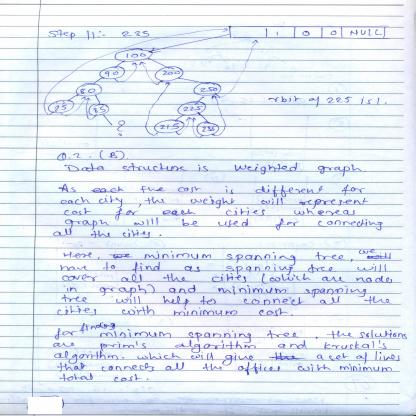 Step 11:- 235
1 0 0 NULL
100
90 200
80 250
225
25 85
215 235
?
rbit of 225 is 1.
Q.2. (B).
Data structure is weighted graph.
As each the cost is different for
each city, the weight will represent
cost for each cities whereas
graph will be used for connecting
all the cities.
Here, minimum spanning tree, we
have to find as spanning tree will
cover all the cities (which are nodes
in graph) and minimum spanning
tree will help to connect all the
cities with minimum cost.
for finding minimum spanning tree, the solutions
are prim's algorithm and kruskal's
algorithm. which will give a set of lines
that connects all the offices with minimum
total cost.